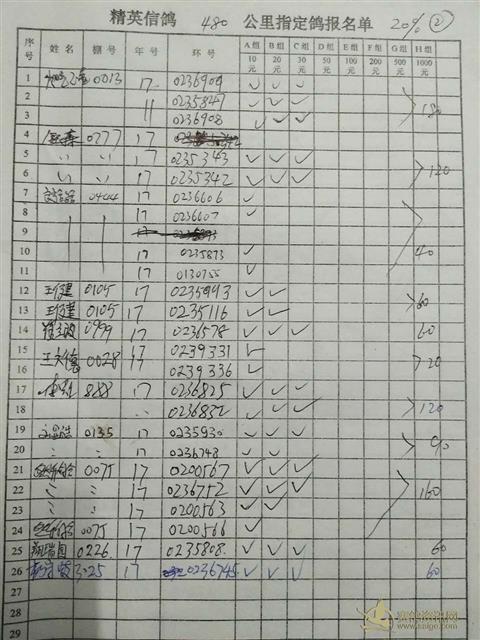 精英信鸽 480 公里指定鸽报名单 20% ②
序号 姓名 棚号 年 环号 A组 B组 C组 D组 E组 F组 G组 H组
10元 20元 30元 50元 100元 200元 500元 1000元
1 0013 17 0236909 ✓ ✓ ✓
2 11 0235847 ✓ ✓ ✓ 180
3 0236908 ✓ ✓ ✓
4 0277 17
5 〃 〃 17 0235343 ✓ ✓ ✓ 120
6 〃 〃 17 0235342 ✓ ✓ ✓
7 0444 17 0236606 ✓
8 17 0236607 ✓
9 17
10 17 0235873 ✓ 40
11 17 0130755 ✓
12 0105 17 0235993 ✓ ✓
13 0105 17 0235116 ✓ ✓ 60
14 0999 17 0236578 ✓ ✓ ✓ 60
15 王大德 0028 17 0239331 ✓ 20
16 17 0239336 ✓
17 888 17 0236825 ✓ ✓ ✓
18 〃 0236832 ✓ ✓ ✓ 120
19 0135 17 0235930 ✓ ✓ ✓
20 〃 〃 17 0236748 ✓ ✓ 90
21 0075 17 0200567 ✓ ✓ ✓
22 〃 〃 17 0236752 ✓ ✓ ✓ 160
23 〃 〃 17 0200563 ✓ ✓
24 0075 17 0200566 ✓
25 0226 17 0235808 ✓ ✓ ✓ 60
26 3025 17 0236745 ✓ ✓ ✓ 60
27
28
29